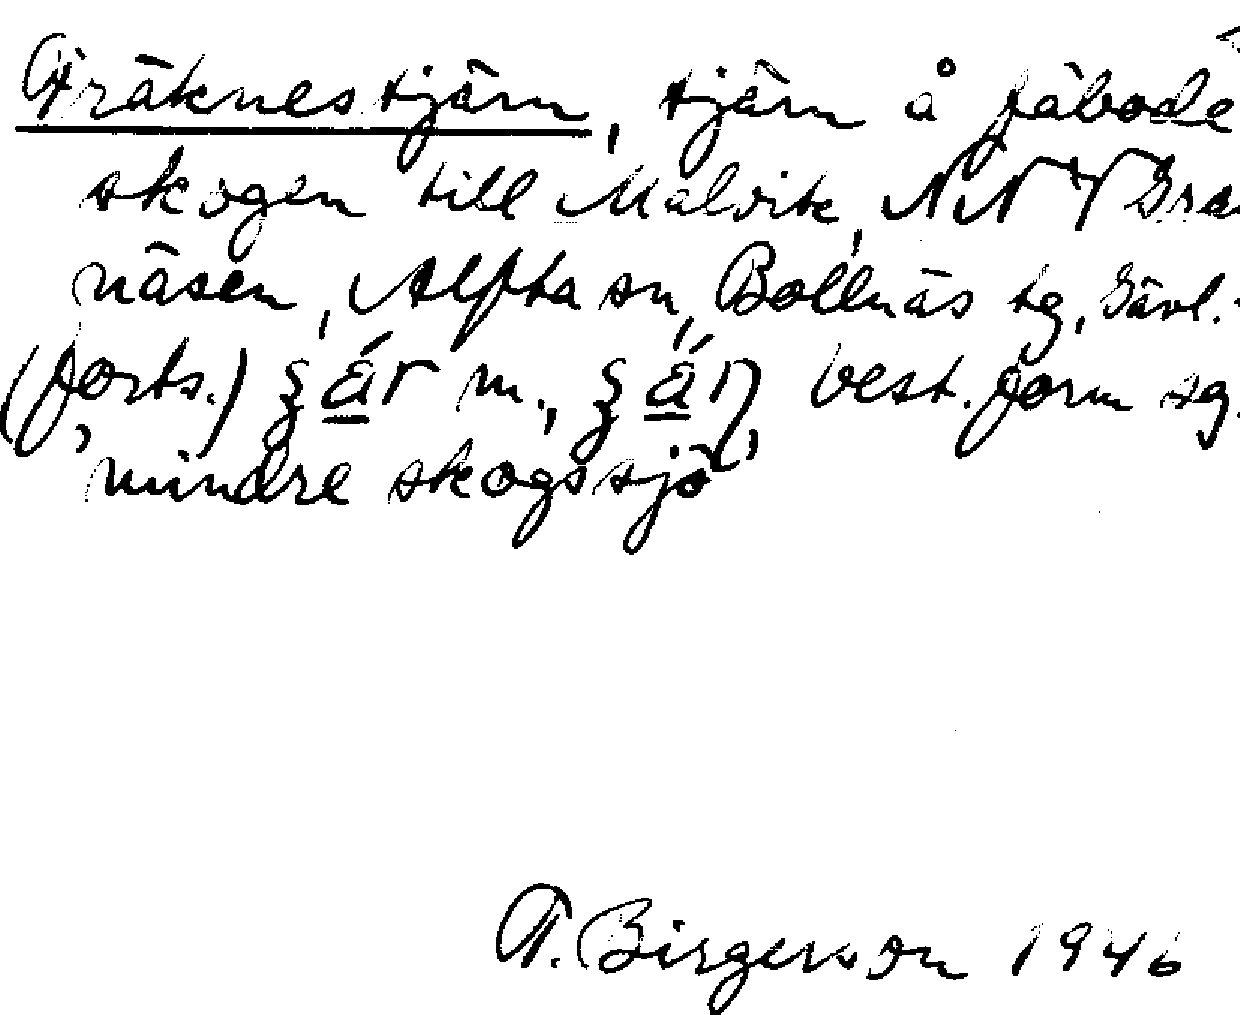 Fräknestjärn, tjärn å fäbode
skogen till Malvik, NNV Gra
näsen, Alfta sn, Bollnäs tg, Gävl.
(forts.) ʂär m., ʂäɳ best. form sg.
'mindre skogssjö'
T. Birgerson 1946